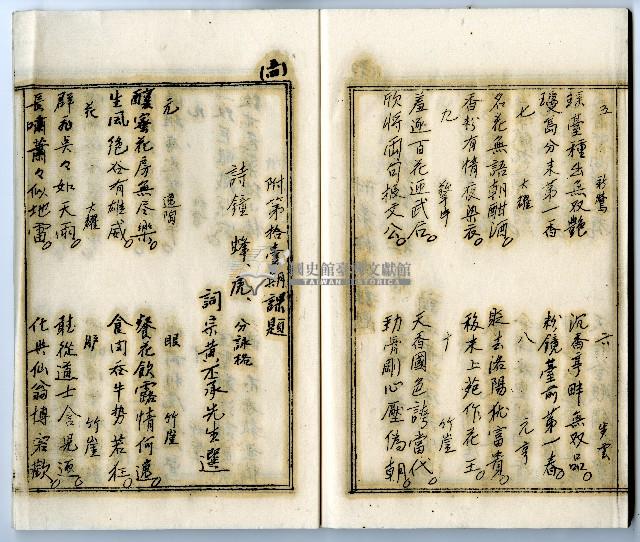 五 新鶯
瑤臺種出無双艷
瓊島分來第一香
七 大耀
名花無語朝酣酒
香粉有情夜染衣
九
羞逐百花迎武后
欣將両句換文公
六 步雲
沉香亭畔無双品
粉鏡臺前第一春
八 元亨
貶去洛陽秋富貴
移来上苑作花王
十 竹崖
天香國色誇當代
勁骨剛心壓偽朝
附第拾壹期課題
詩鐘 蜂、虎、分詠格
詞宗黃丕承先生選
元 逸陶
釀蜜花房無尽樂
生風絕谷有雄威
花 大耀
群飛吳々如天雨
長嘯蕭々似地雷
眼 竹崖
餐花飲露情何適
食肉吞牛势若狂
胪 竹崖
聽從道士含見逐
化與仙翁博宕歡
國史館臺灣文獻館
TAIWAN HISTORICA